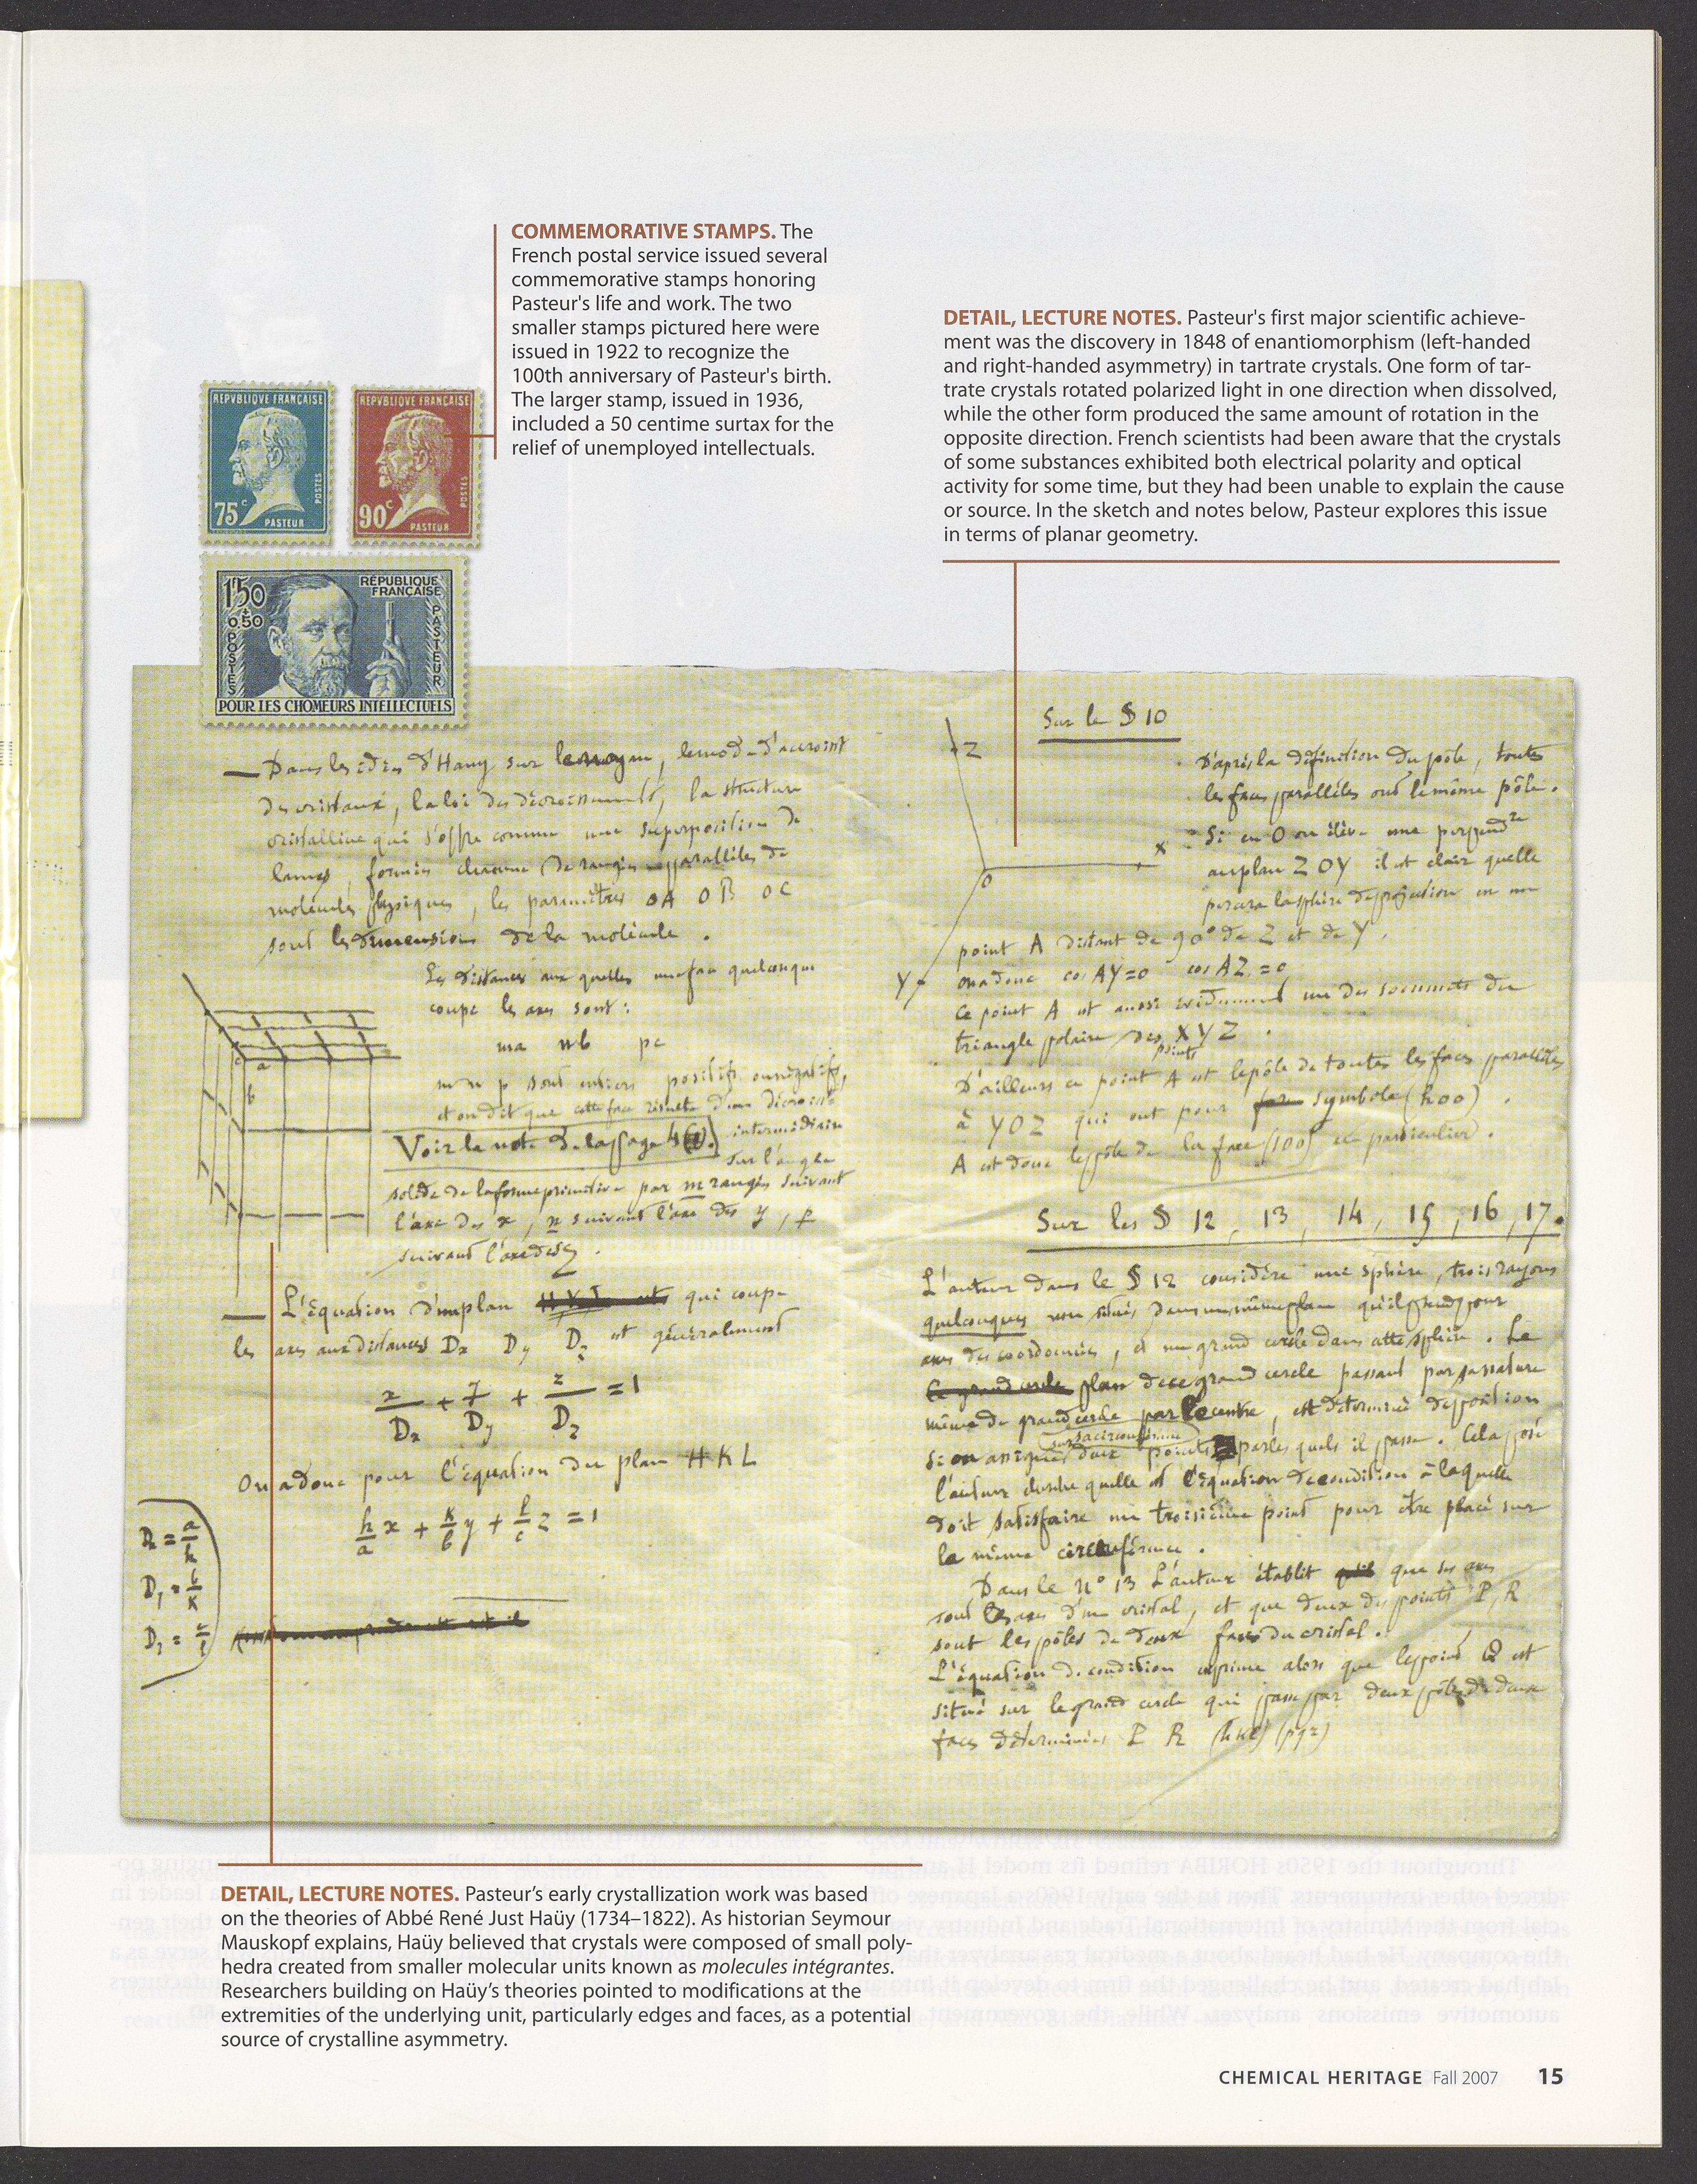 COMMEMORATIVE STAMPS. The
French postal service issued several
commemorative stamps honoring
Pasteur's life and work. The two
smaller stamps pictured here were
issued in 1922 to recognize the
100th anniversary of Pasteur's birth.
The larger stamp, issued in 1936,
included a 50 centime surtax for the
relief of unemployed intellectuals.
DETAIL, LECTURE NOTES. Pasteur's first major scientific achieve-
ment was the discovery in 1848 of enantiomorphism (left-handed
and right-handed asymmetry) in tartrate crystals. One form of tar-
trate crystals rotated polarized light in one direction when dissolved,
while the other form produced the same amount of rotation in the
opposite direction. French scientists had been aware that the crystals
of some substances exhibited both electrical polarity and optical
activity for some time, but they had been unable to explain the cause
or source. In the sketch and notes below, Pasteur explores this issue
in terms of planar geometry.
REPVBLIQVE FRANÇAISE
POSTES
75c
PASTEUR
REPVBLIQVE FRANÇAISE
POSTES
90c
PASTEUR
1f50
+
0,50
POSTES
RÉPUBLIQUE
FRANÇAISE
PASTEUR
POUR LES CHOMEURS INTELLECTUELS
Dans les idées d'Hauy sur le noyau, le mode d'accroist
des cristaux, la loi des décroissements, la structure
cristalline qui s'offre comme une superposition de
lames, formées chacune de rangées parallèles de
molécules physiques, les paramètres OA OB OC
sont les dimensions de la molécule.
Les distances aux quelles une face quelconque
coupe les axes sont :
ma nb pc
m n p sont entiers positifs ou négatifs,
et on dit que cette face résulte d'un décroist
Voir la note de la page 4 intermédiaire
sur l'angle
solide de la forme primitive par m rangées suivant
l'axe des x, n suivant l'axe des y, p
suivant l'axe des z.
L'équation d'un plan qui coupe
les axes aux distances Dx Dy Dz est généralement
x/Dx + y/Dy + z/Dz = 1
On a donc pour l'équation du plan HKL
h/a x + k/b y + l/c z = 1
Dx = a/h
Dy = b/k
Dz = c/l
a
b
Sur le § 10
Z
X
O
Y
D'après la définition du pôle, toutes
les faces parallèles ont le même pôle.
Si en O on élève une perpendre
au plan ZOY il est clair quelle
percera la sphère de projection en un
point A distant de 90° de Z et de Y,
on a donc cos AY=0 cos AZ=0
Ce point A est aussi évidemment un des sommets du
triangle polaire des XYZ.
points
D'ailleurs ce point A est le pôle de toutes les faces parallèles
à YOZ qui ont pour symbole (h00).
A est donc le pôle de la face (100) en particulier.
Sur les § 12, 13, 14, 15, 16, 17.
L'auteur dans le § 12 considère une sphère, trois rayons
quelconques non situés dans un même plan qu'il prend pour
axes des coordonnées, et un grand cercle dans cette sphère. Le
plan de ce grand cercle passant par sa nature
même de grand cercle par le centre, est déterminé de position
si on assigne deux points par lesquels il passe. Cela posé
sur sa circonférence
l'auteur cherche quelle est l'équation de condition à laquelle
doit satisfaire un troisième point pour être placé sur
la même circonférence.
Dans le n° 13 L'auteur établit que ses axes
sont les axes d'un cristal, et que deux des points P, R
sont les pôles de deux faces du cristal.
L'équation de condition exprime alors que le point Q est
situé sur le grand cercle qui passe par deux pôles de deux
faces déterminées P R (hkl) (pqr)
DETAIL, LECTURE NOTES. Pasteur's early crystallization work was based
on the theories of Abbé René Just Haüy (1734–1822). As historian Seymour
Mauskopf explains, Haüy believed that crystals were composed of small poly-
hedra created from smaller molecular units known as molecules intégrantes.
Researchers building on Haüy's theories pointed to modifications at the
extremities of the underlying unit, particularly edges and faces, as a potential
source of crystalline asymmetry.
CHEMICAL HERITAGE Fall 2007 15